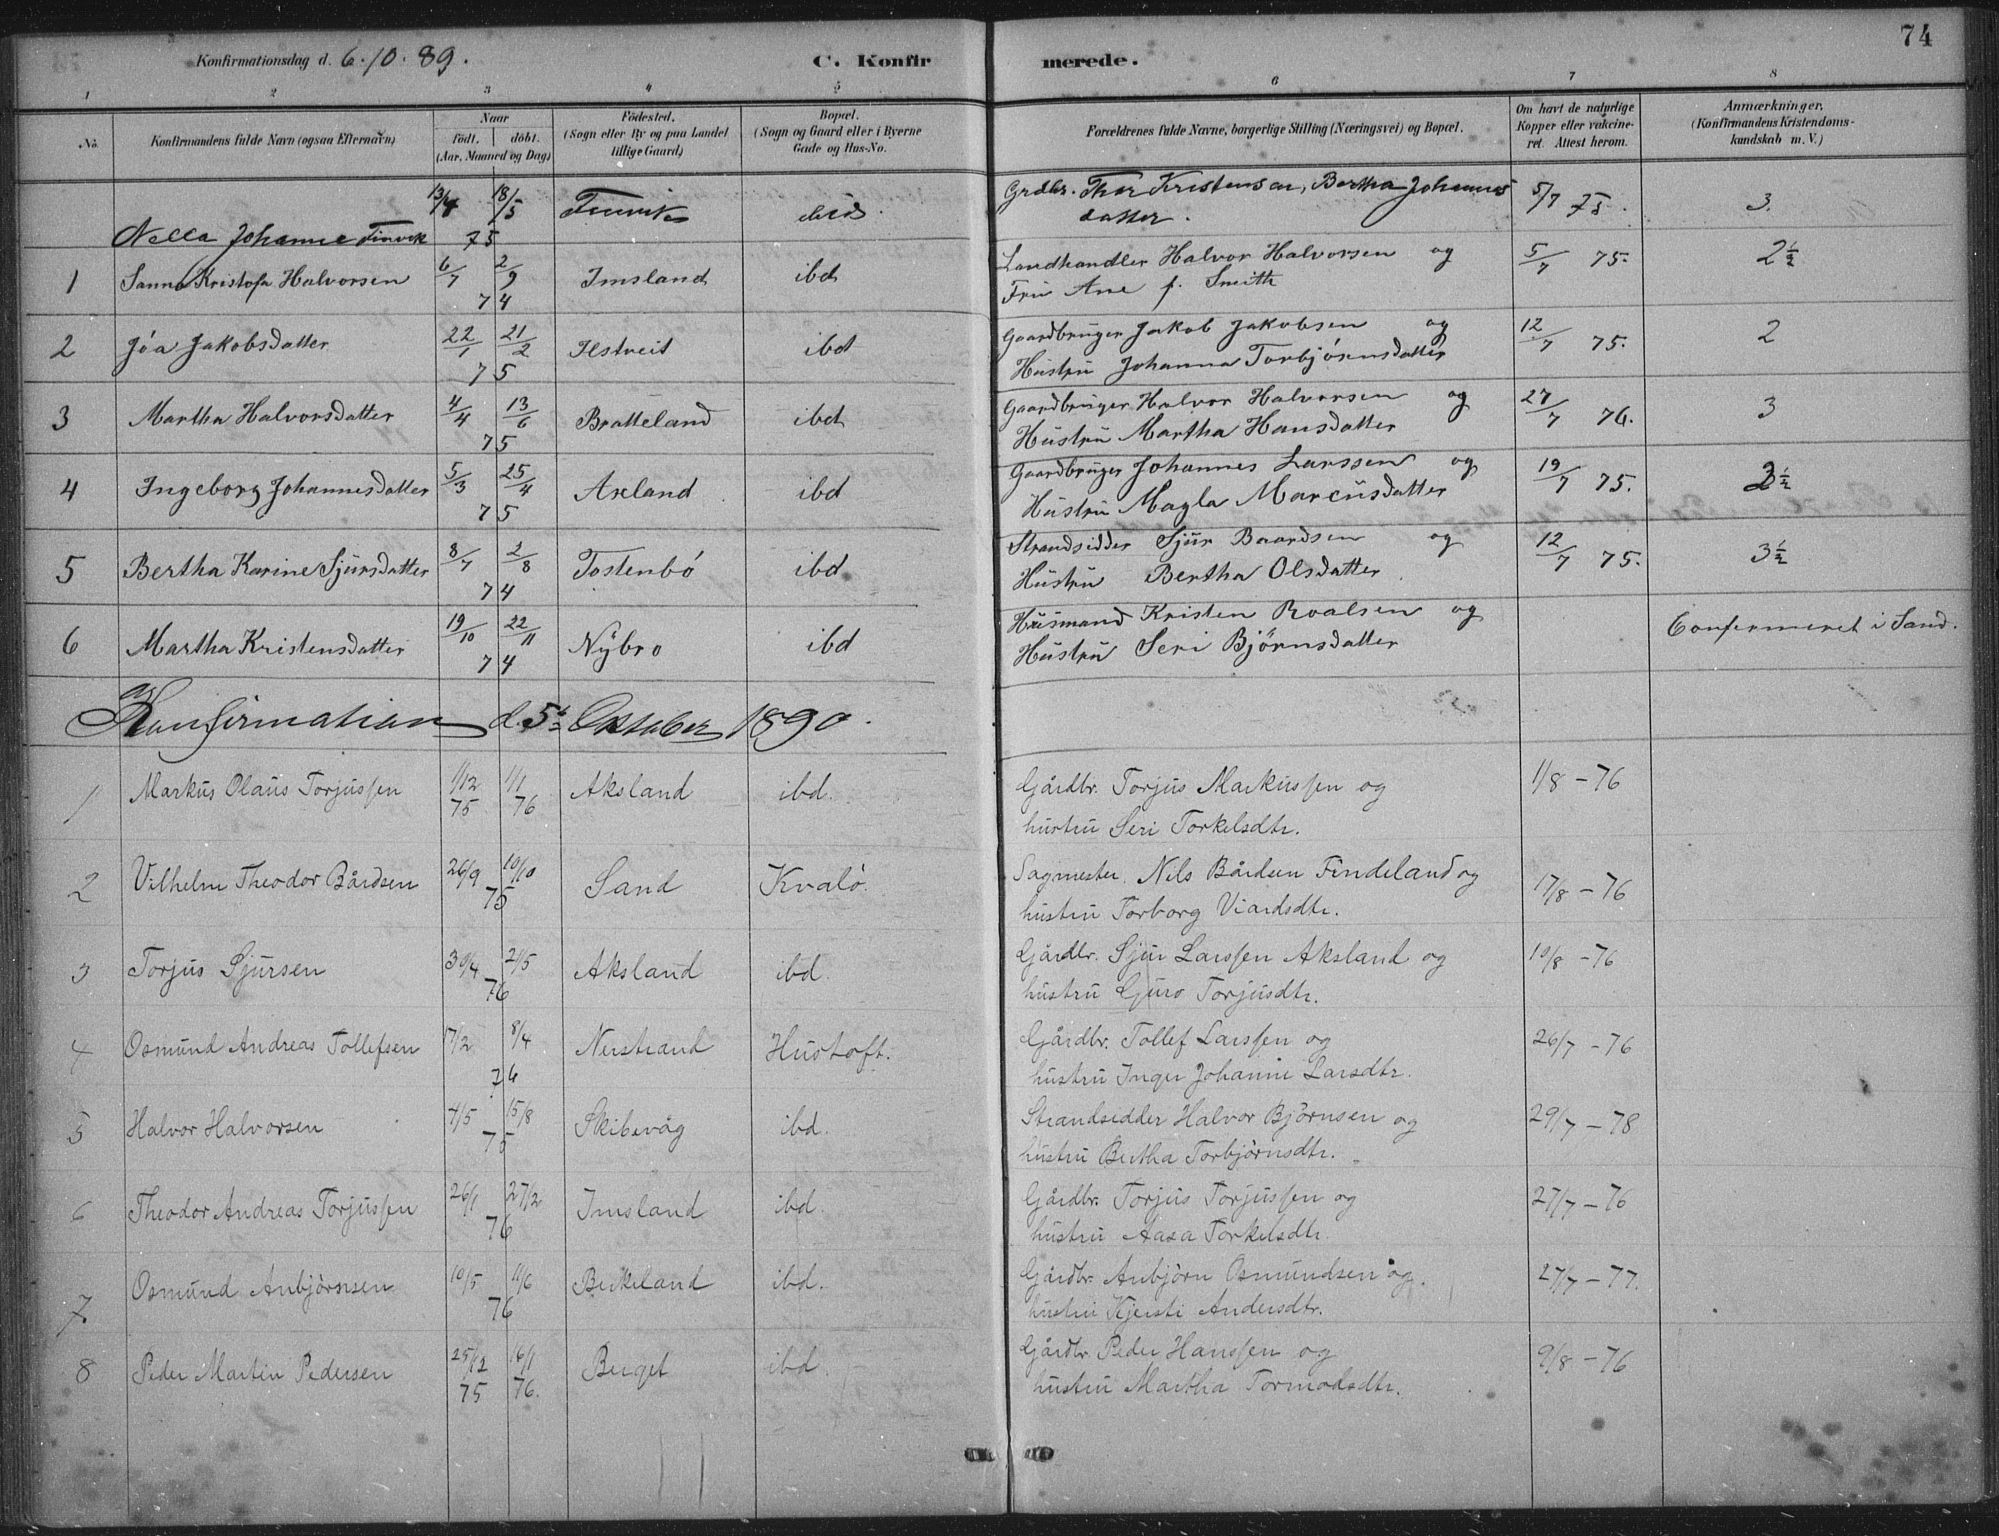 74
Konfirmationsdag d. 6.10.89. C. Konfirmerede.
1 2 3 4 5 6 7 8
No. Konfirmandens fulde Navn (ogsaa Efternavn) Naar født. døbt. (Aar, Maaned og Dag) Fødested. (Sogn eller By og paa Landet tillige Gaard) Bopæl. (Sogn og Gaard eller i Byerne Gade og Hus-No. Forældrenes fulde Navne, borgerlige Stilling (Næringsvei) og Bopæl. Om havt de naturlige Kopper eller vakcineret. Attest herom. Anmærkninger. (Konfirmandens Kristendomskundskab m. V.)
13/4 18/5 Finvik ibid. Grdbr. Thor Kristensen, Bertha Johannes 5/7 75. 3.
Nella Johanne Finvik 75 datter.
1 Sanna Kristofa Halvorsen 6/7 2/9 Imsland ibd Landhandler Halvor Halvorsen og 5/7 75. 2½
74 Fru Ane f. Smith
2 Jóa Jakobsdatter 22/1 21/2 Ilstveit ibd Gaardbruger Jakob Jakobsen og 12/7 75. 2
75 Hustru Johanna Torbjørensdatter
3 Martha Halvorsdatter 4/4 13/6 Bratteland ibd Gaardbruger Halvor Halvorsen og 27/7 76. 3
75 Hustru Martha Hansdatter
4 Ingeborg Johannesdatter 5/3 25/4 Axland ibd Gaardbruger Johannes Larssen og 19/7 75. 3½
75 Hustru Magla Marcusdatter
5 Bertha Karine Sjursdatter 8/7 2/8 Tostenbó ibd Strandsidder Sjur Baardsen og 12/7 75. 3½
74 Hustru Bertha Olsdatter
6 Martha Kristensdatter 19/10 22/11 Nÿbro ibd Husmand Kristen Roalsen og Confermeret i Sand.
74 Hustru Seri Bjørnsdatter
Konfirmation d. 5te Oktober 1890.
1 Markus Olaus Torjussen 1/12 1/1 Aksland ibd. Gårdbr. Torjus Markussen og 11/8 - 76
75 76 hustru Seri Torkelsdtr.
2 Vilhelm Theodor Bårdsen 26/9 10/10 Sand Kvalø. Sagmester. Nils Bårdsen Findeland og 17/8 - 76
75 hustru Torborg Viardsdtr.
3 Torjus Sjursen 30/4 21/5 Aksland ibd. Gårdbr. Sjur Larssen Aksland og 10/8 - 76
76 hustru Guro Torjusdtr.
4 Osmund Andreas Tollefsen 17/2 8/4 Nerstrand Hustoft. Gårdbr. Tollef Larssen og 26/7 - 76
76 hustru Inger Johanne Larsdtr.
5 Halvor Halvorsen 4/5 15/8 Skibevåg ibd. Strandsidder Halvor Bjørnsen og 29/7 - 78
75 hustru Bertha Torbjørnsdtr.
6 Theodor Andreas Torjussen 26/1 27/2 Imsland ibd. Gårdbr. Torjus Torjussen og 27/7 - 76
76 hustru Aasa Torkelsdtr.
7 Osmund Anbjørnsen 10/5 11/6 Birkeland ibd. Gårdbr. Anbjørn Osmundsen og 27/7 - 77.
76 hustru Kjersti Andersdtr.
8 Peder Martin Pedersen 25/12 16/1 Berget ibd. Gårdbr. Peder Hanssen og 9/8 - 76
75 76. hustru Martha Tormodsdtr.